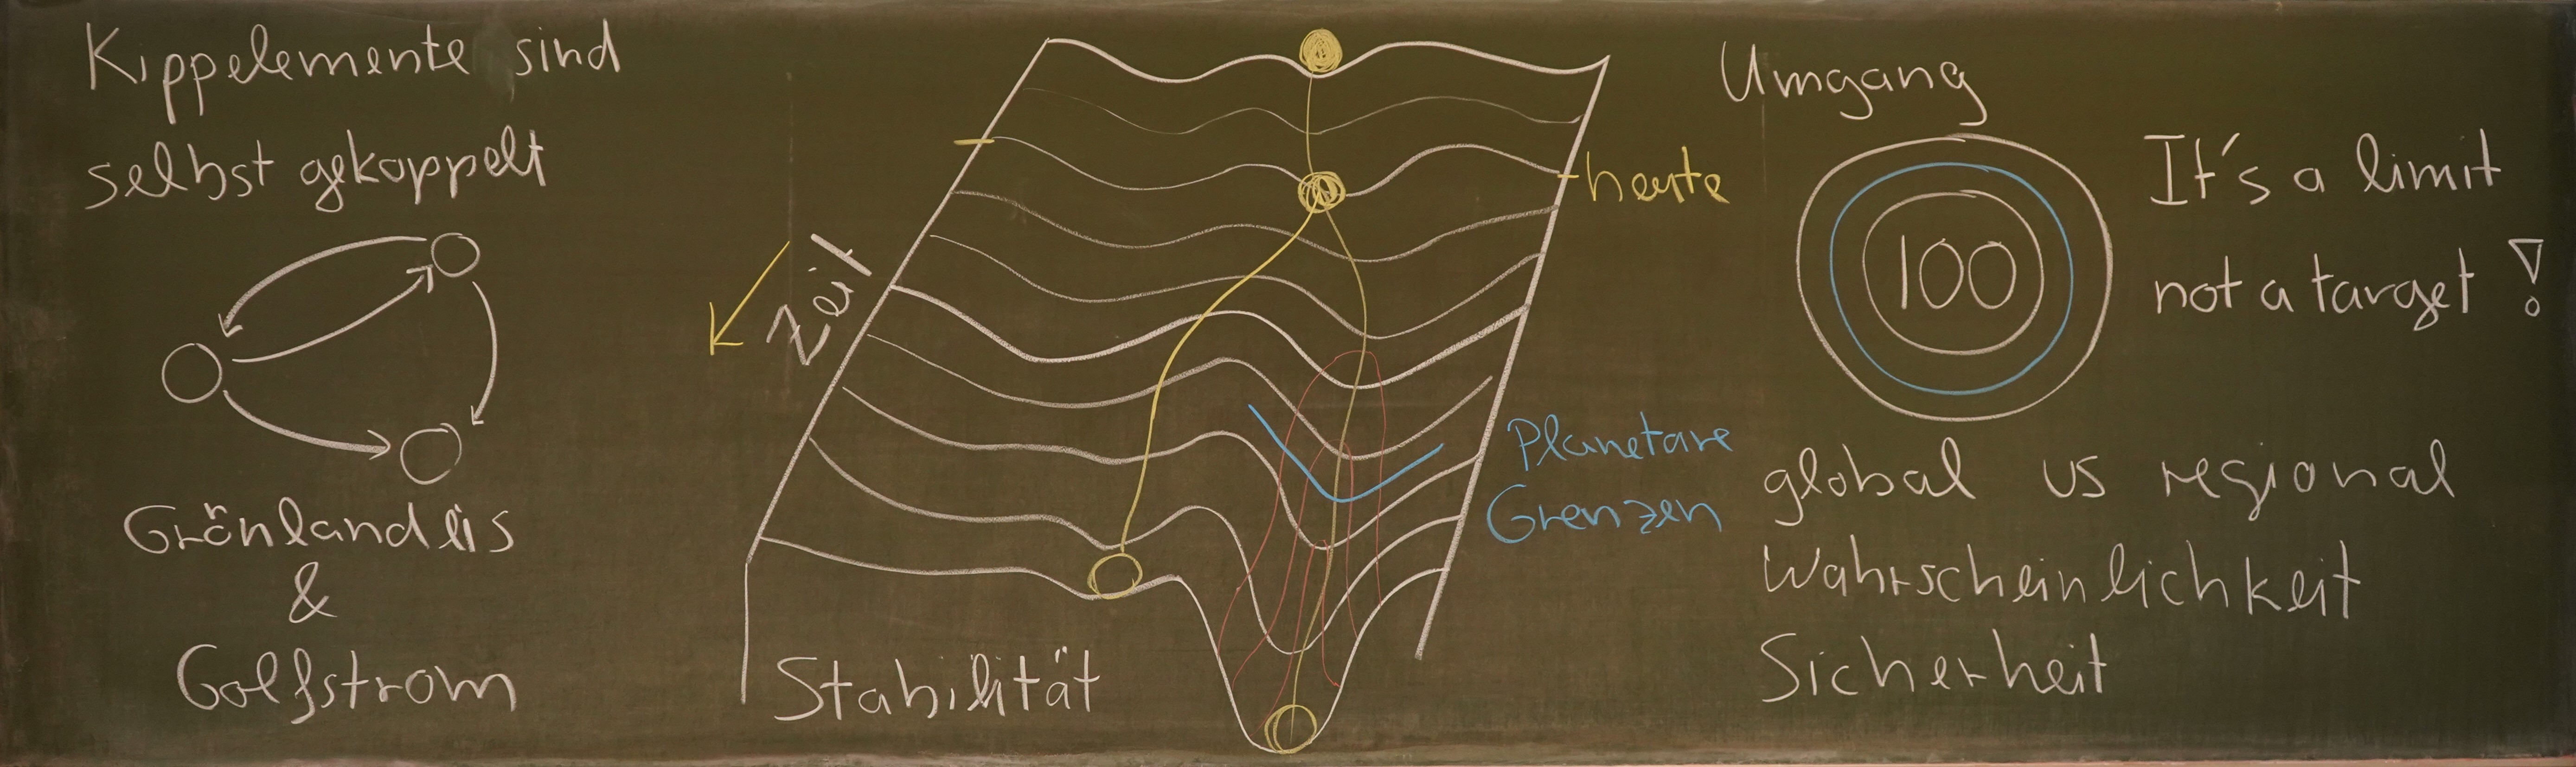 Kippelemente sind
selbst gekoppelt
Grönlandeis
&
Golfstrom
Zeit
Stabilität
heute
Planetare
Grenzen
Umgang
100
It's a limit
not a target!
global vs regional
Wahrscheinlichkeit
Sicherheit